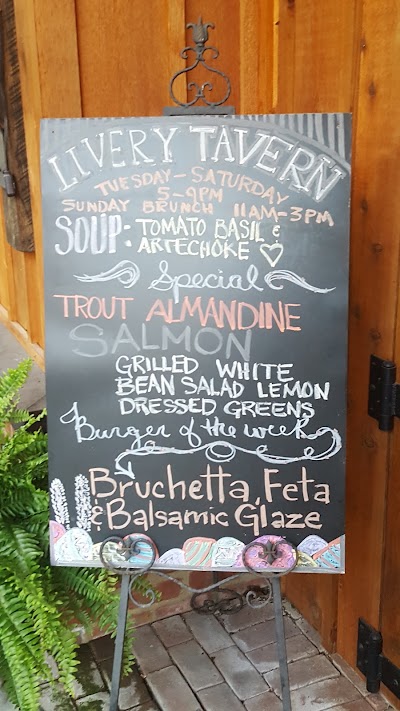 LIVERY TAVERN
TUESDAY - SATURDAY
5-9PM
SUNDAY BRUNCH 11AM-3PM
SOUP: TOMATO BASIL &
ARTECHOKE ♡
Special
TROUT ALMANDINE
SALMON
GRILLED WHITE
BEAN SALAD LEMON
DRESSED GREENS
Burger of the week
Bruchetta, Feta
& Balsamic Glaze